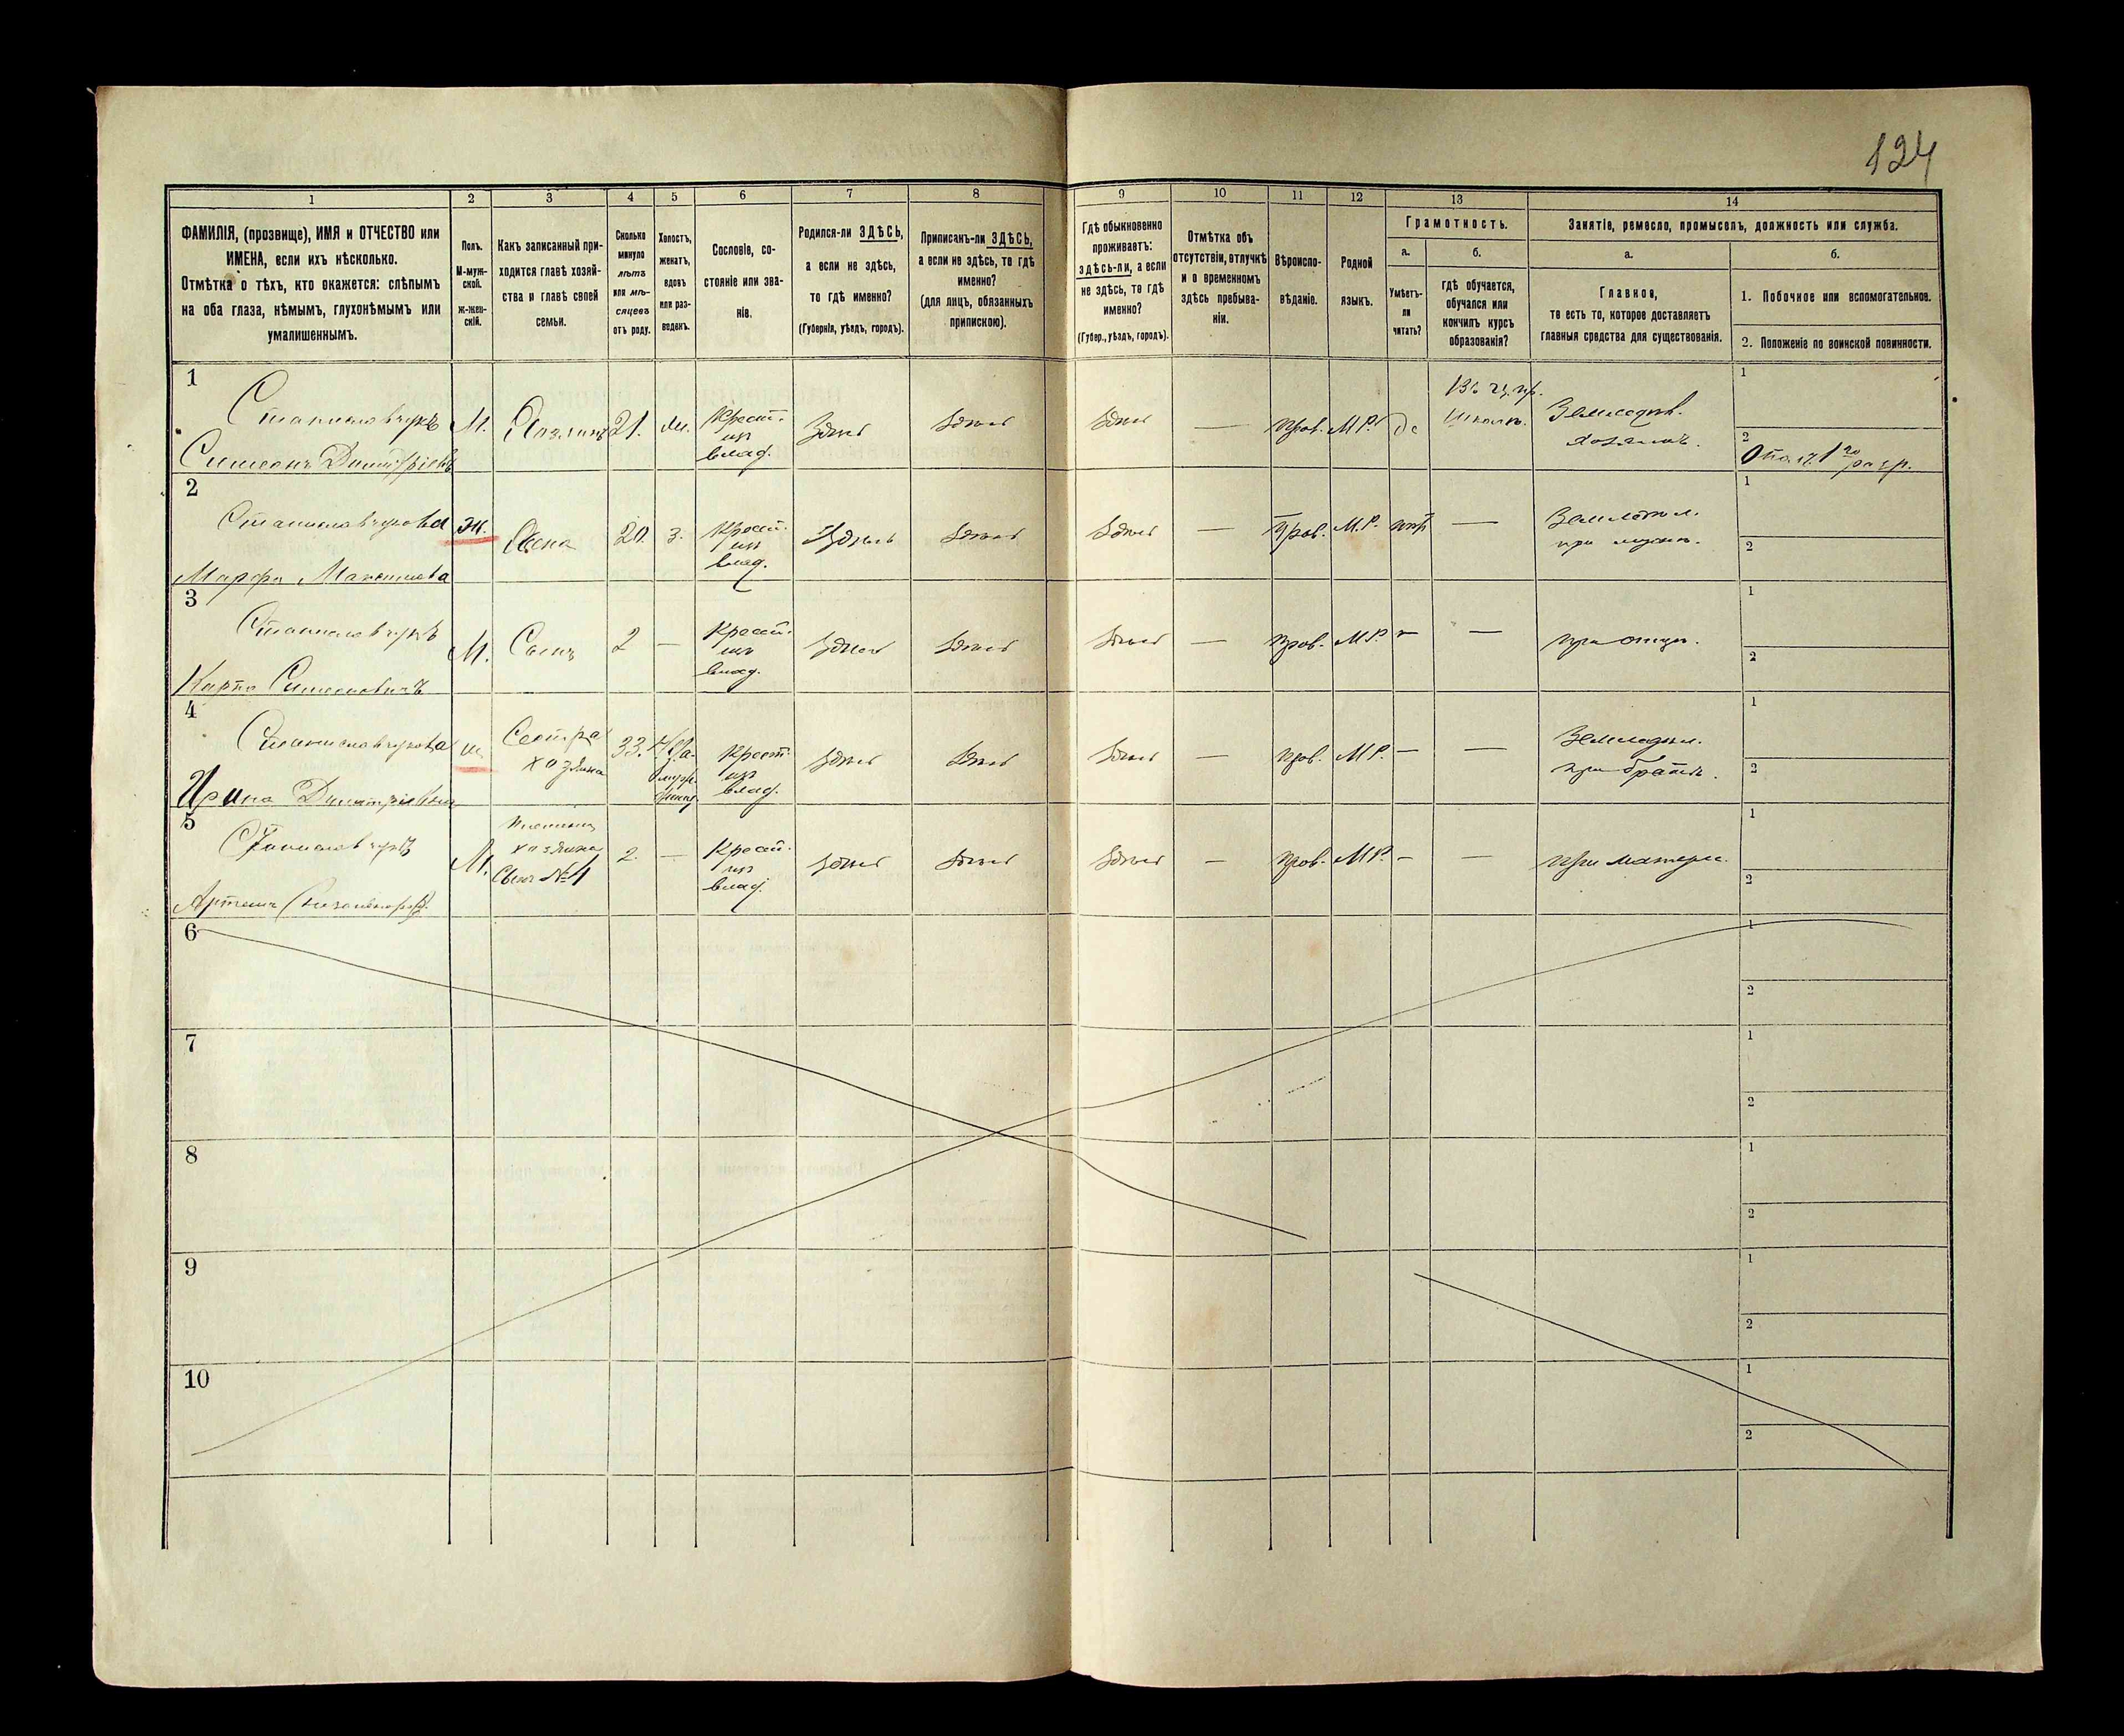 124
1 2 3 4 5 6 7 8 9 10 11 12 13 14
ФАМИЛІЯ, (прозвище), ИМЯ и ОТЧЕСТВО или
ИМЕНА, если ихъ нѣсколько.
Отмѣтка о тѣхъ, кто окажется: слѣпымъ
на оба глаза, нѣмымъ, глухонѣмымъ или
умалишеннымъ.
Полъ.
М-муж-
ской.
Ж-жен-
скій.
Какъ записанный при-
ходится главѣ хозяй-
ства и главѣ своей
семьи.
Сколько
минуло
лѣтъ
или мѣ-
сяцевъ
отъ роду.
Холостъ,
женатъ,
вдовъ
или раз-
веденъ.
Сословіе, со-
стояніе или зва-
ніе.
Родился-ли ЗДѢСЬ,
а если не здѣсь,
то гдѣ именно?
(Губернія, уѣздъ, городъ).
Приписанъ-ли ЗДѢСЬ,
а если не здѣсь, то гдѣ
именно?
(для лицъ, обязанныхъ
припискою).
Гдѣ обыкновенно
проживаетъ:
здѣсь-ли, а если
не здѣсь, то гдѣ
именно?
(Губер., уѣздъ, городъ).
Отмѣтка объ
отсутствіи, отлучкѣ
и о временномъ
здѣсь пребыва-
ніи.
Вѣроиспо-
вѣданіе.
Родной
языкъ.
Грамотность.
а.
Умѣетъ-
ли
читать?
б.
гдѣ обучается,
обучался или
кончилъ курсъ
образованія?
Занятіе, ремесло, промыселъ, должность или служба.
а.
Главное,
то есть то, которое доставляетъ
главныя средства для существованія.
б.
1. Побочное или вспомогательное.
2. Положеніе по воинской повинности.
1
Симеонъ
М. Хозяинъ 21. Крест. из влад. Здѣсь Здѣсь Здѣсь — Прав. М.Р. да
школѣ. хозяинъ.
1
2
1го разр.
2
Марфа
Ж. Жена 20. З. Крест. из влад. Здѣсь Здѣсь Здѣсь — Прав. М.Р. нѣтъ —
при мужѣ.
1
2
3
Карпъ
М. Сынъ 2 — Крест. из влад. Здѣсь Здѣсь Здѣсь — Прав. М.Р. — — при отцѣ.
1
2
4
Ирина
Сестра хозяина 33. Крест. из влад. Здѣсь Здѣсь Здѣсь — Прав. М.Р. — —
при братѣ.
1
2
5
Артемъ
М. хозяина Сынъ №4 2. — Крест. из влад. Здѣсь Здѣсь Здѣсь — Прав. М.Р. — — при матери.
1
2
6
1
2
7
1
2
8
1
2
9
1
2
10
1
2